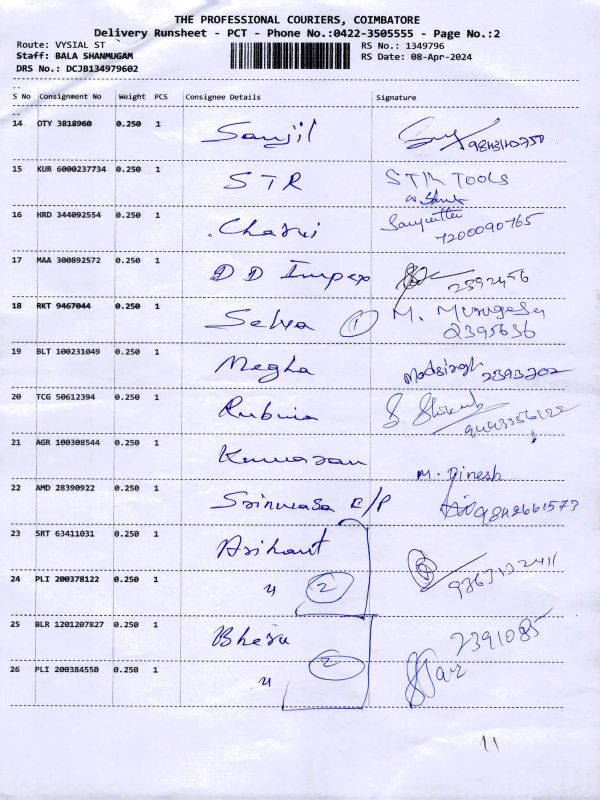 THE PROFESSIONAL COURIERS, COIMBATORE
Delivery Runsheet - PCT - Phone No.:0422-3505555 - Page No.:2
Route: VYSIAL ST RS No.: 1349796
Staff: BALA SHANMUGAM RS Date: 08-Apr-2024
DRS No.: DCJB134979602
S No Consignment No Weight PCS Consignee Details Signature
14 OTY 3818960 0.250 1 Sanjil
15 KUR 6000237734 0.250 1 STR STR TOOLS
16 HRD 344092554 0.250 1 Charvi 7200090765
17 MAA 300892572 0.250 1 D D Impex 2392456
18 RKT 9467044 0.250 1 Selva 1 M. Murugesa
2395636
19 BLT 100231049 0.250 1 Megha 2393202
20 TCG 50612394 0.250 1 Rubnia
21 AGR 100308544 0.250 1 Kumaran
M. Dinesh
22 AMD 28390922 0.250 1 Srinivasa E/P 9842661573
23 SRT 63411031 0.250 1 Arihant
24 PLI 200378122 0.250 1 " 2 9363122411
25 BLR 1201207827 0.250 1 Bheru 2391085
26 PLI 200384550 0.250 1 " 2
11